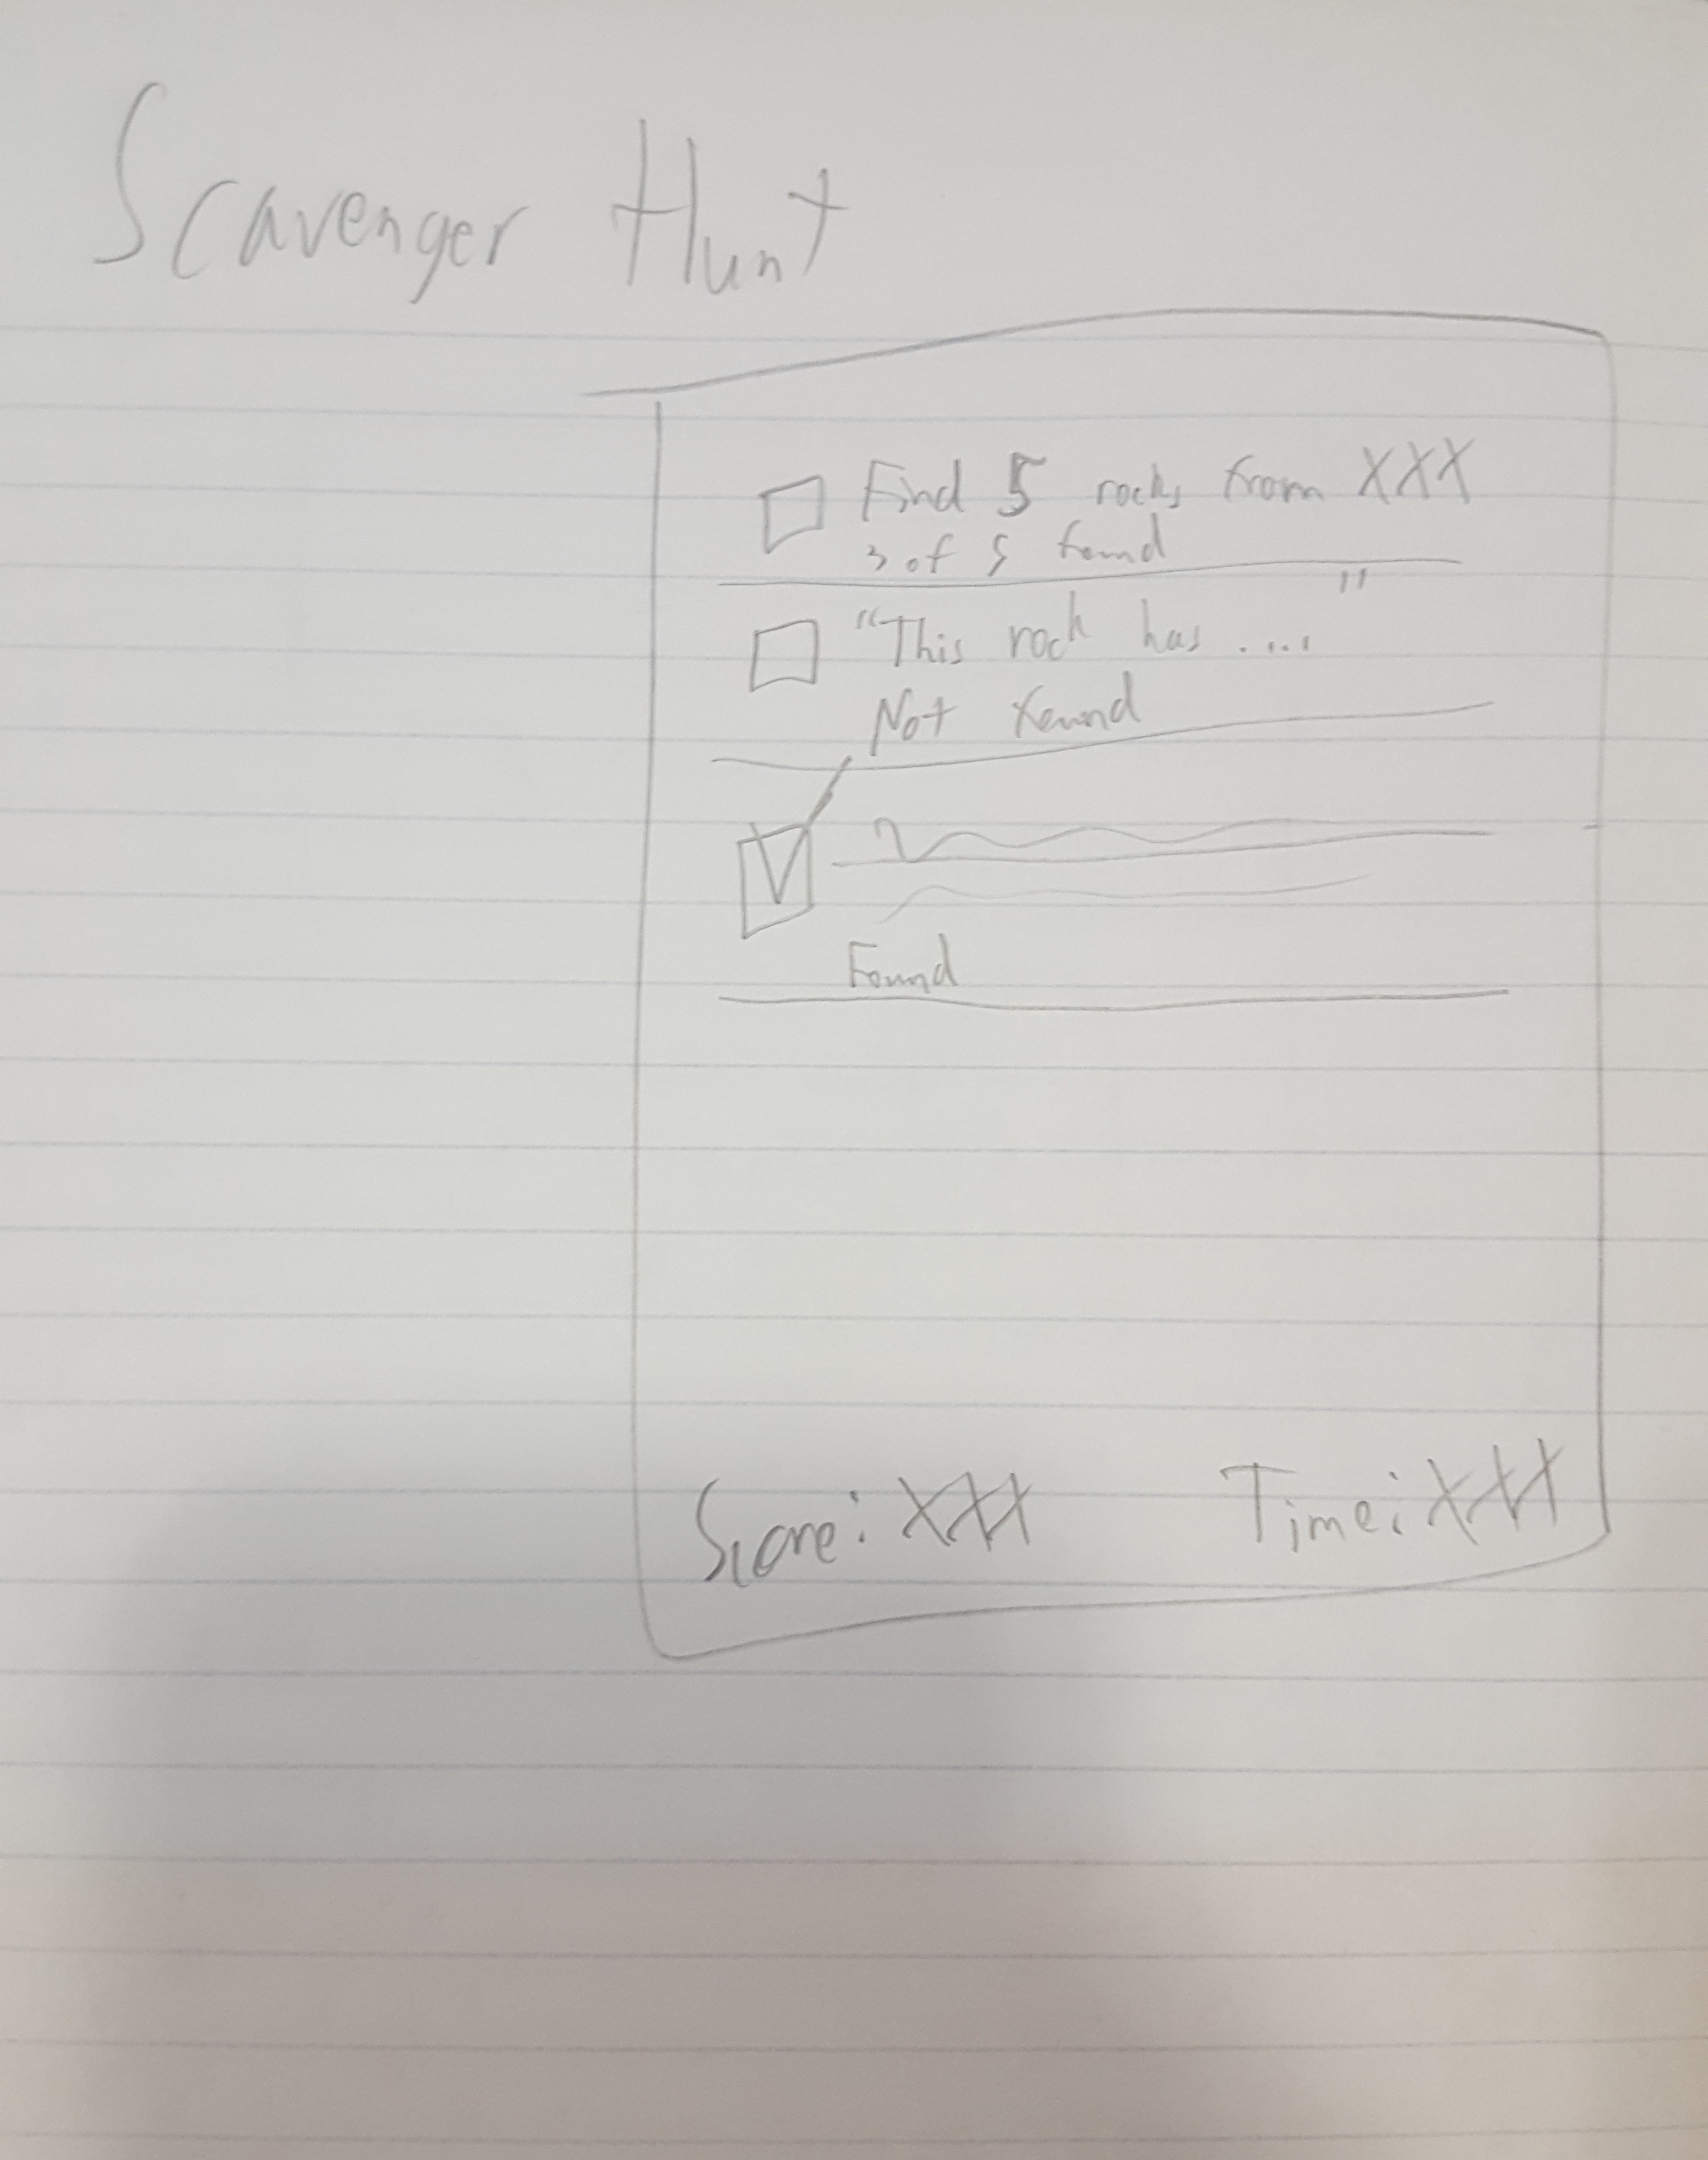 Scavenger Hunt
Find 5 rocks from XXX
3 of 5 found
"This rock has ...."
Not found
Found
Score: XXX
Time: XXX